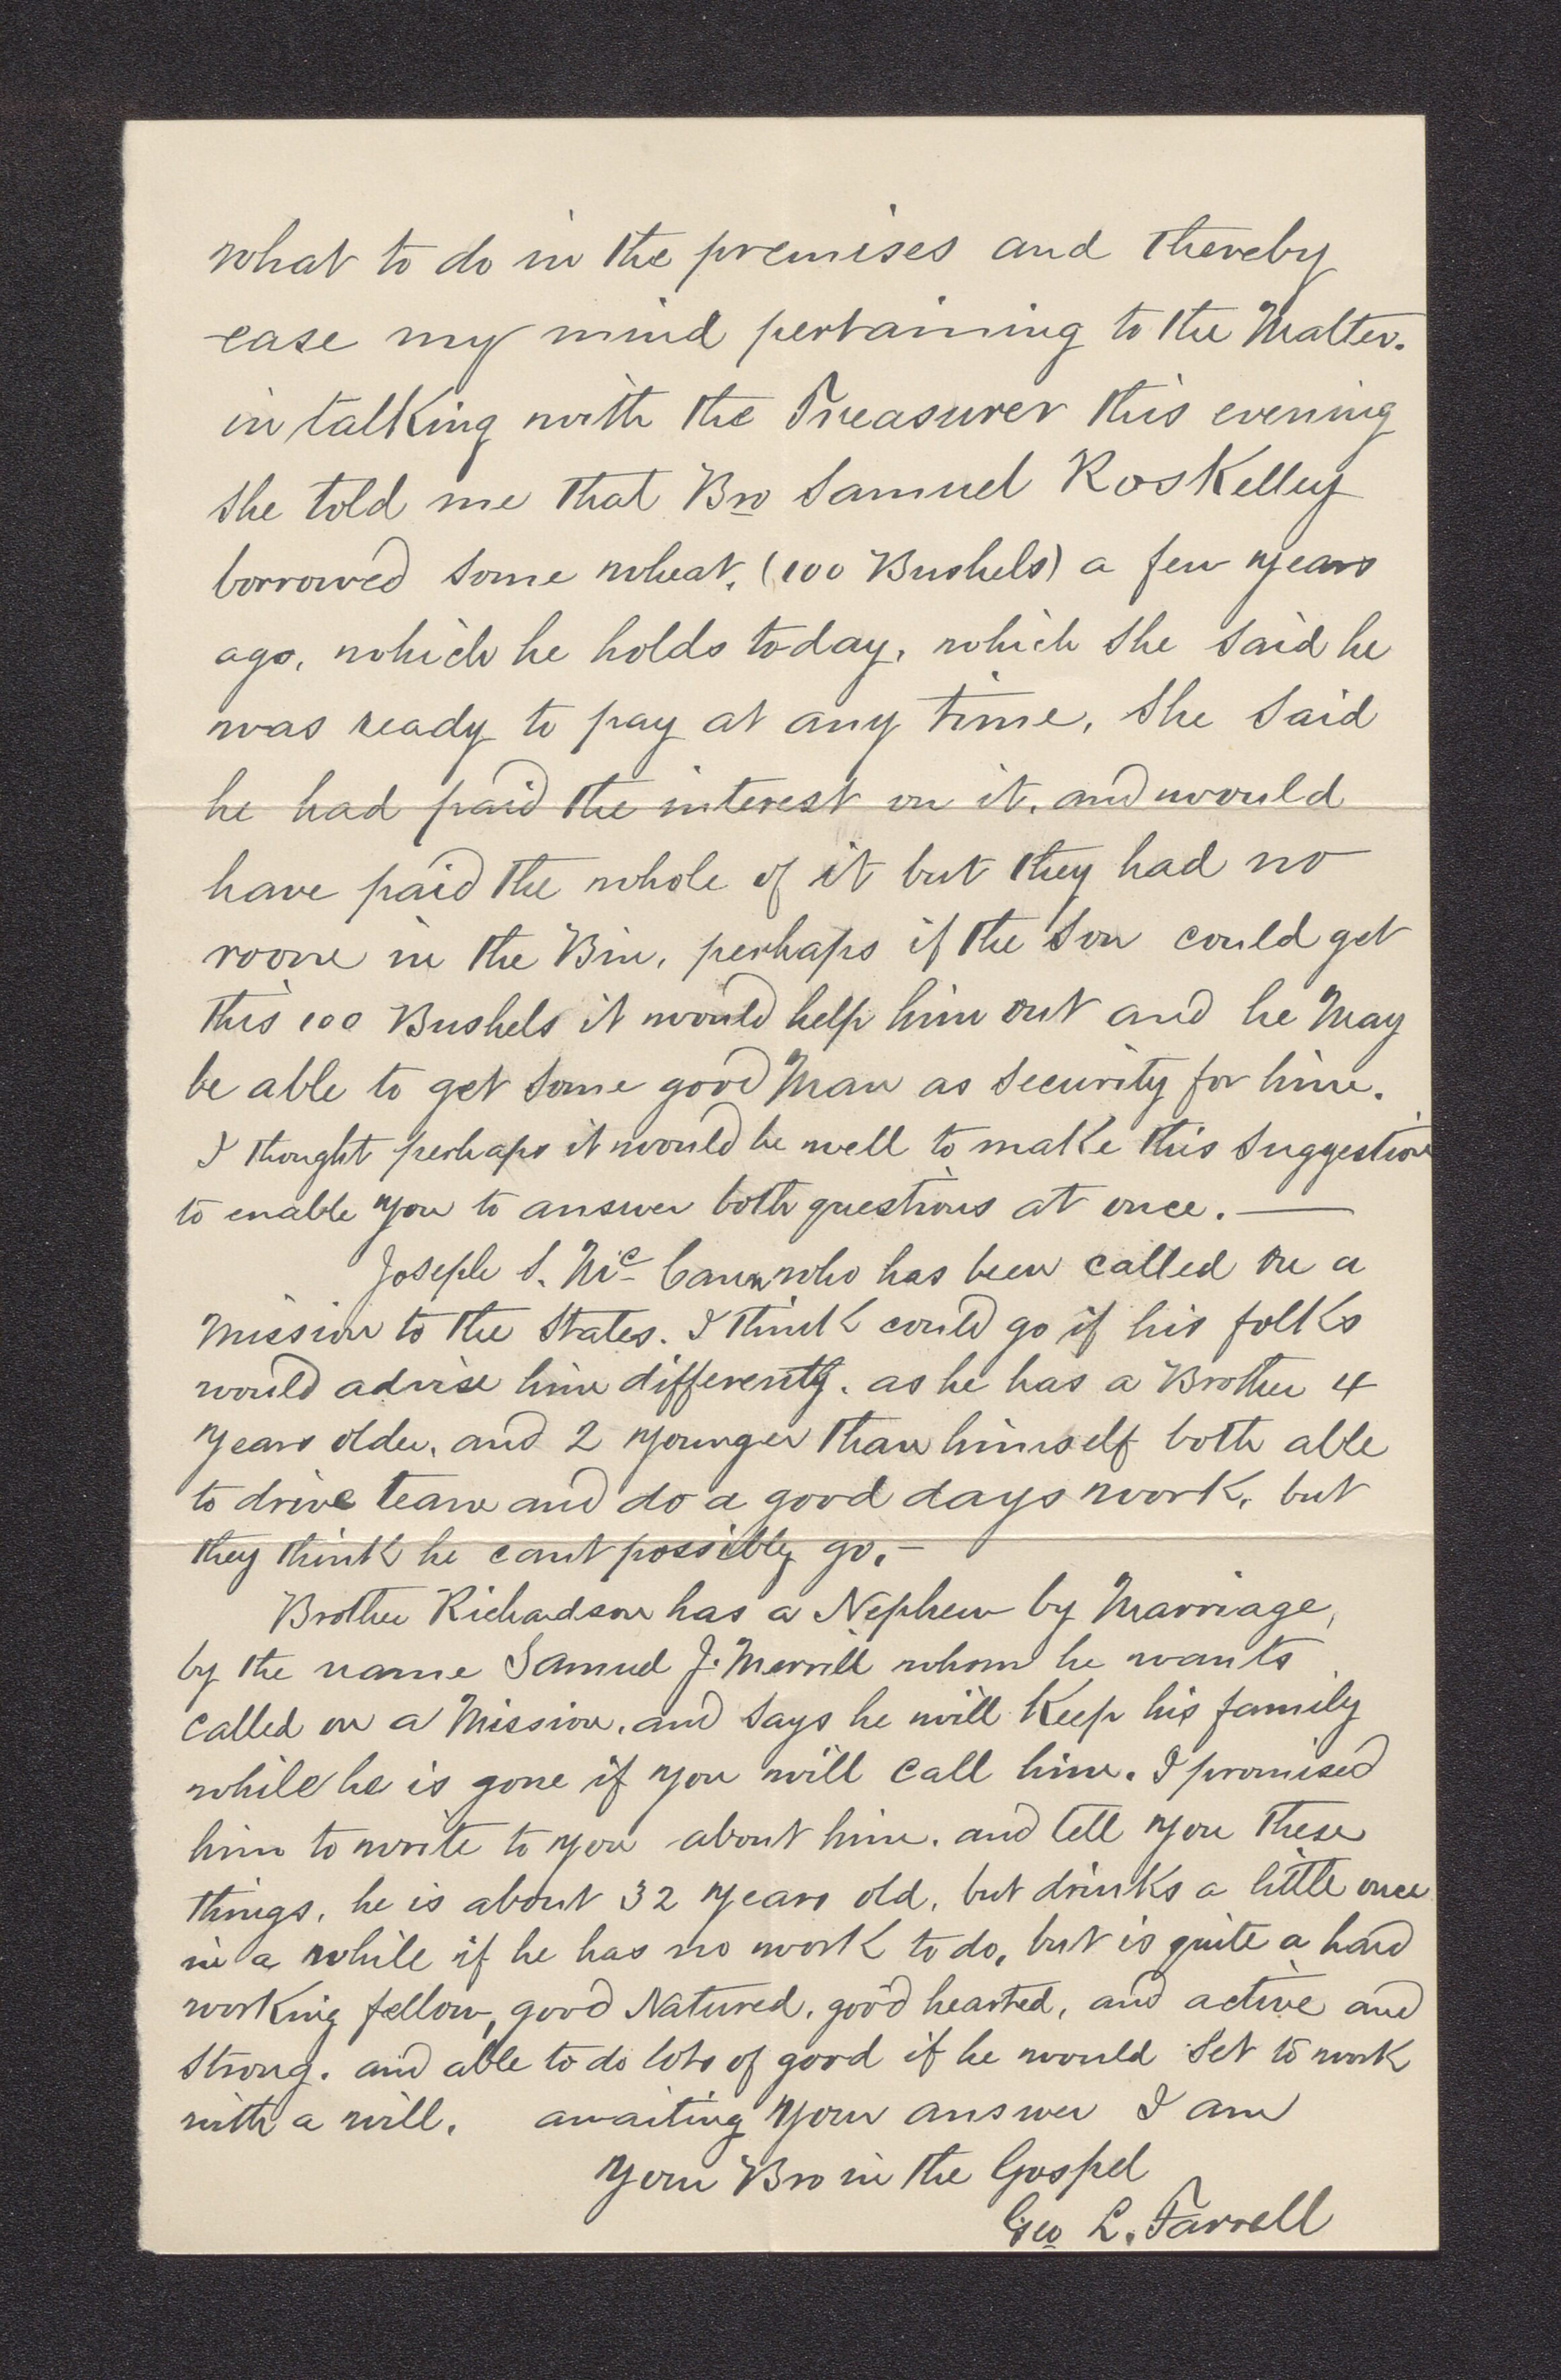 what to do in the premises and thereby
ease my mind pertaining to the Matter.
in talking with the Treasurer this evening
she told me that Bro Samuel Roskelley
borrowed some wheat, (100 Bushels) a few years
ago, which he holds today, which she said he
was ready to pay at any time, She said
he had paid the interest on it, and would
have paid the whole of it but they had no
room in the Bin, perhaps if the Son could get
this 100 Bushels it would help him out and he May
be able to get some good Man as security for him.
I thought perhaps it would be well to make this suggestion
to enable you to answer both questions at once. —
Joseph S. Mc Cann who has been called on a
Mission to the States. I think could go if his folks
would advise him differently. as he has a Brother 4
years older, and 2 younger than himself both able
to drive team and do a good days work, but
they think he cant possibly go. –
Brother Richardson has a Nephew by Marriage,
by the name Samuel J. Merrill whom he wants
called on a Mission, and says he will Keep his family
while he is gone if you will call him. I promised
him to write to you about him. and tell you these
things, he is about 32 years old, but drinks a little once
in a while if he has no work to do, but is quite a hard
working fellow, good Natured, good hearted, and active and
strong. and able to do lots of good if he would set to work
with a will. awaiting your answer I am
Your Bro in the Gospel
Geo L. Farrell